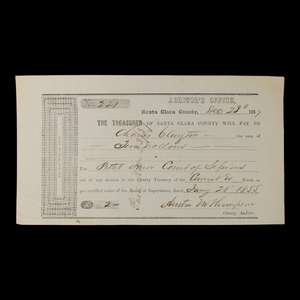 AUDITOR'S OFFICE,
No. 221
Santa Clara County, Dec 28th 1857
THE TREASURER OF SANTA CLARA COUNTY WILL PAY TO
Charles Clayton the sum of
Two Dollars
For Court of Sessions
out of any moneys in the County Treasury of the Fund, as
per certified order of the Board of Supervisors, dated 1855
$ 2
Thompson
County Auditor.